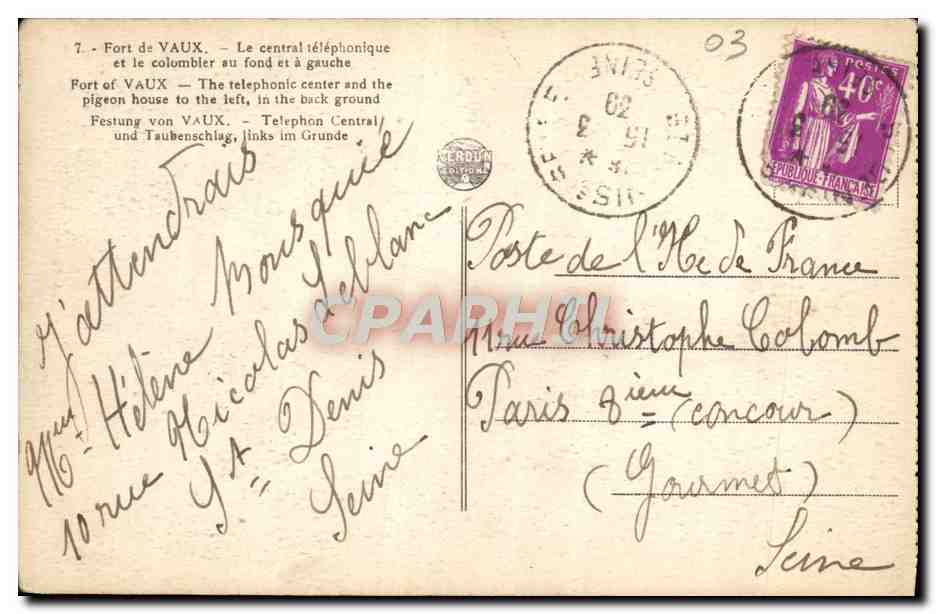 7. - Fort de VAUX. - Le central téléphonique
et le colombier au fond et à gauche
Fort of VAUX — The telephonic center and the
pigeon house to the left, in the back ground
Festung von VAUX. - Telephon Central
und Taubenschlag, links im Grunde
VERDUN
EDITIONS
03
SEINE
POSTES
40c
REPUBLIQUE-FRANCAISE
J'attendrais
Mme Hélène Mousquie
10 rue Nicolas Leblanc
St Denis
Seine
Poste de l'Ile de France
11 rue Christophe Colomb
Paris 8ieme (concour)
(Gourmet)
Seine
CPARHI